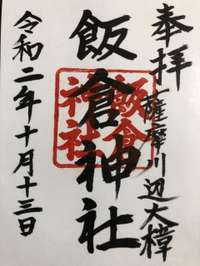 奉拝
薩摩川辺大樟
飯倉神社
飯倉
神社
令和二年十月十三日